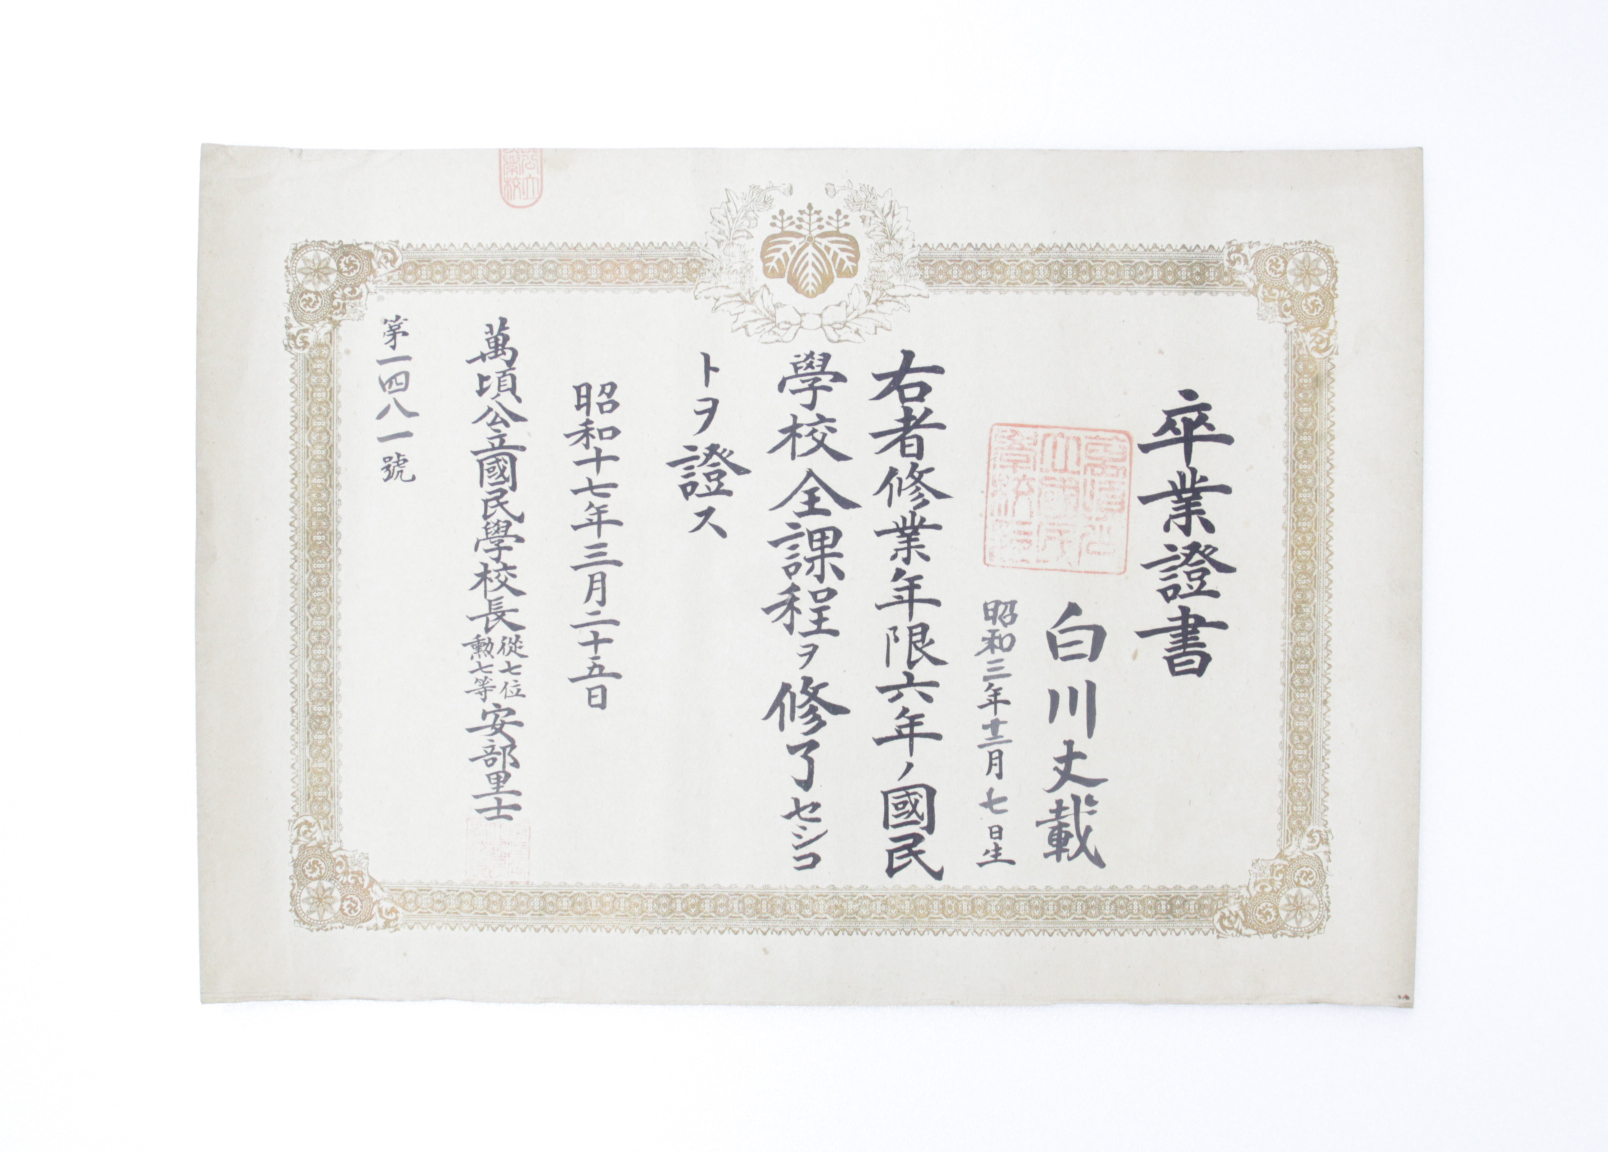 卒業證書
白川丈載
昭和三年十二月七日生
右者修業年限六年ノ國民
學校全課程ヲ修了セシコ
トヲ證ス
昭和十七年三月二十五日
萬頃公立國民學校長 從七位 勲七等 安部里士
第一四八一號